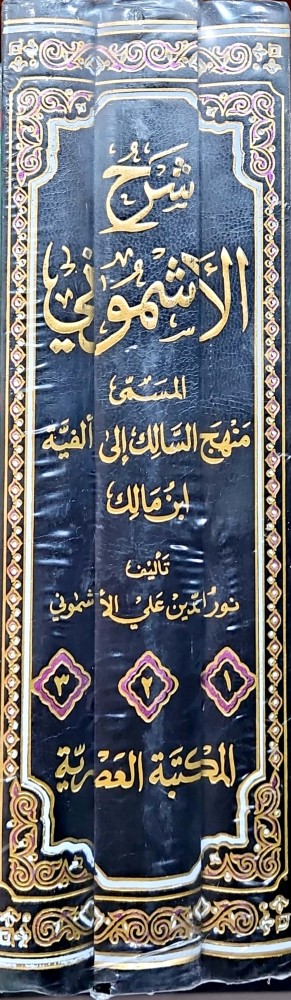 شرح
الأشموني
المسمى
منهج السالك إلى ألفية
ابن مالك
تأليف
نور الدين علي الأشموني
١ ٢ ٣
المكتبة العصرية